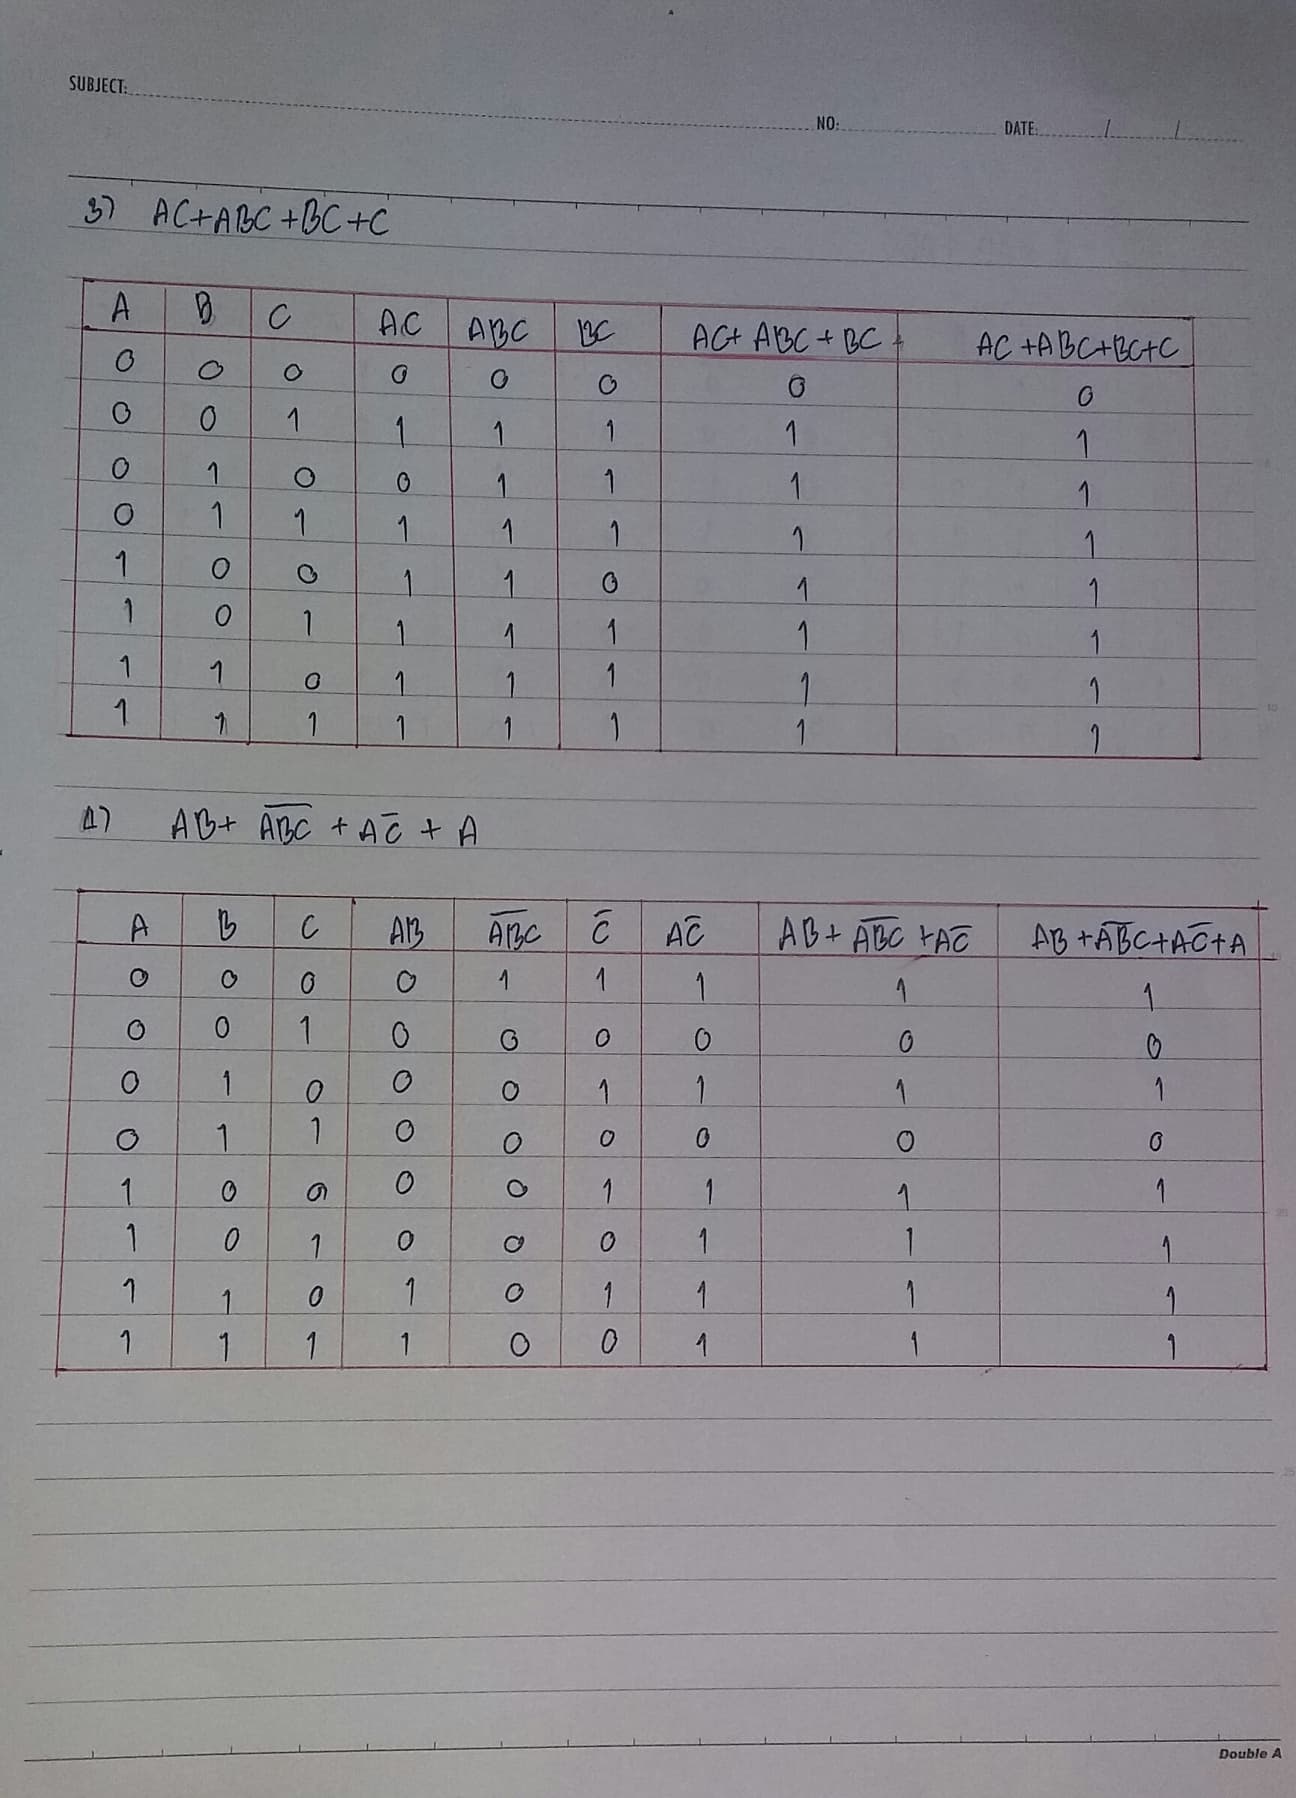 SUBJECT:
NO: DATE: / /
3) AC+ABC+BC+C
A B C AC ABC BC AC+ ABC + BC + AC +ABC+BC+C
0 0 0 0 0 0 0 0
0 0 1 1 1 1 1 1
0 1 0 0 1 1 1 1
0 1 1 1 1 1 1 1
1 0 0 1 1 0 1 1
1 0 1 1 1 1 1 1
1 1 0 1 1 1 1 1
1 1 1 1 1 1 1 1
4) AB+ A̅B̅C̅ + AC̅ + A
A B C AB A̅B̅C̅ C̅ AC̅ AB+ A̅B̅C̅ +AC̅ AB +A̅B̅C+AC̅+A
0 0 0 0 1 1 1 1 1
0 0 1 0 0 0 0 0 0
0 1 0 0 0 1 1 1 1
0 1 1 0 0 0 0 0 0
1 0 0 0 0 1 1 1 1
1 0 1 0 0 0 1 1 1
1 1 0 1 0 1 1 1 1
1 1 1 1 0 0 1 1 1
Double A